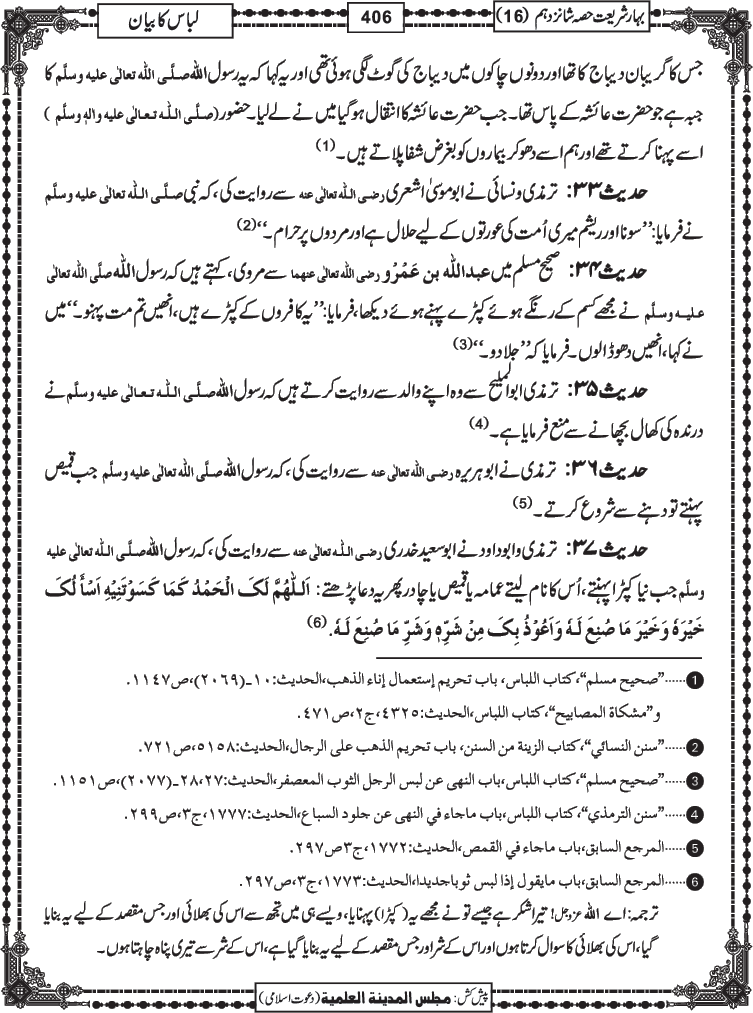 بہارِ شریعت حصہ شانزدہم (16)
406
لباس کا بیان
جس کا گریبان دیباج کا تھا اور دونوں چاکوں میں دیباج کی گوٹ لگی ہوئی تھی اور یہ کہا کہ یہ رسول اللہ صلَّی اللہ تعالٰی علیہ وسلَّم کا
جبہ ہے جو حضرت عائشہ کے پاس تھا۔ جب حضرت عائشہ کا انتقال ہوگیا میں نے لے لیا۔ حضور (صلَّی اللہ تعالٰی علیہ واٰلہٖ وسلَّم)
اسے پہنا کرتے تھے اور ہم اسے دھو کر بیماروں کو بغرض شفا پلاتے ہیں۔ (1)
حدیث ۳۳: ترمذی و نسائی نے ابوموسیٰ اشعری رضی اللہ تعالٰی عنہ سے روایت کی، کہ نبی صلَّی اللہ تعالٰی علیہ وسلَّم
نے فرمایا: ”سونا اور ریشم میری اُمت کی عورتوں کے لیے حلال ہے اور مردوں پر حرام۔“ (2)
حدیث ۳۴: صحیح مسلم میں عبداللہ بن عَمْرْو رضی اللہ تعالٰی عنہما سے مروی، کہتے ہیں کہ رسول اللہ صلَّی اللہ تعالٰی
علیہ وسلَّم نے مجھے کسم کے رنگے ہوئے کپڑے پہنے ہوئے دیکھا، فرمایا: ”یہ کافروں کے کپڑے ہیں، انھیں تم مت پہنو۔“ میں
نے کہا، انھیں دھو ڈالوں۔ فرمایا کہ ”جلا دو۔“ (3)
حدیث ۳۵: ترمذی ابوالملیح سے وہ اپنے والد سے روایت کرتے ہیں کہ رسول اللہ صلَّی اللہ تعالٰی علیہ وسلَّم نے
درندہ کی کھال بچھانے سے منع فرمایا ہے۔ (4)
حدیث ۳۶: ترمذی نے ابوہریرہ رضی اللہ تعالٰی عنہ سے روایت کی، کہ رسول اللہ صلَّی اللہ تعالٰی علیہ وسلَّم جب قمیص
پہنتے تو دہنے سے شروع کرتے۔ (5)
حدیث ۳۷: ترمذی و ابوداود نے ابوسعید خدری رضی اللہ تعالٰی عنہ سے روایت کی، کہ رسول اللہ صلَّی اللہ تعالٰی علیہ
وسلَّم جب نیا کپڑا پہنتے، اُس کا نام لیتے عمامہ یا قمیص یا چادر پھر یہ دعا پڑھتے: اَللّٰهُمَّ لَکَ الْحَمْدُ کَمَا کَسَوْتَنِیْهِ اَسْأَلُکَ
خَیْرَہٗ وَخَیْرَ مَا صُنِعَ لَـہٗ وَاَعُوْذُ بِکَ مِنْ شَرِّہٖ وَشَرِّ مَا صُنِعَ لَـہٗ. (6)
1......”صحیح مسلم“، کتاب اللباس، باب تحریم إستعمال إناء الذهب، الحدیث: ۱۰۔(۲۰۶۹)، ص۱۱۴۷.
و”مشکاۃ المصابیح“، کتاب اللباس، الحدیث: ۴۳۲۵، ج۲، ص۴۷۱.
2......”سنن النسائي“، کتاب الزینة من السنن، باب تحریم الذهب علی الرجال، الحدیث: ۵۱۵۸، ص۷۲۱.
3......”صحیح مسلم“، کتاب اللباس، باب النهی عن لبس الرجل الثوب المعصفر، الحدیث: ۲۸،۲۷۔(۲۰۷۷)، ص۱۱۵۱.
4......”سنن الترمذي“، کتاب اللباس، باب ماجاء في النهی عن جلود السباع، الحدیث: ۱۷۷۷، ج۳، ص۲۹۹.
5......المرجع السابق، باب ماجاء في القمص، الحدیث: ۱۷۷۲، ج۳ص۲۹۷.
6......المرجع السابق، باب مایقول إذا لبس ثوبا جدیدا، الحدیث: ۱۷۷۳، ج۳، ص۲۹۷.
ترجمہ: اے اللہ عزوجل! تیرا شکر ہے جیسے تو نے مجھے یہ (کپڑا) پہنایا، ویسے ہی میں تجھ سے اس کی بھلائی اور جس مقصد کے لیے یہ بنایا
گیا، اس کی بھلائی کا سوال کرتا ہوں اور اس کے شر اور جس مقصد کے لیے یہ بنایا گیا ہے، اس کے شر سے تیری پناہ چاہتا ہوں۔
پیش کش: مجلس المدینة العلمیة (دعوت اسلامی)